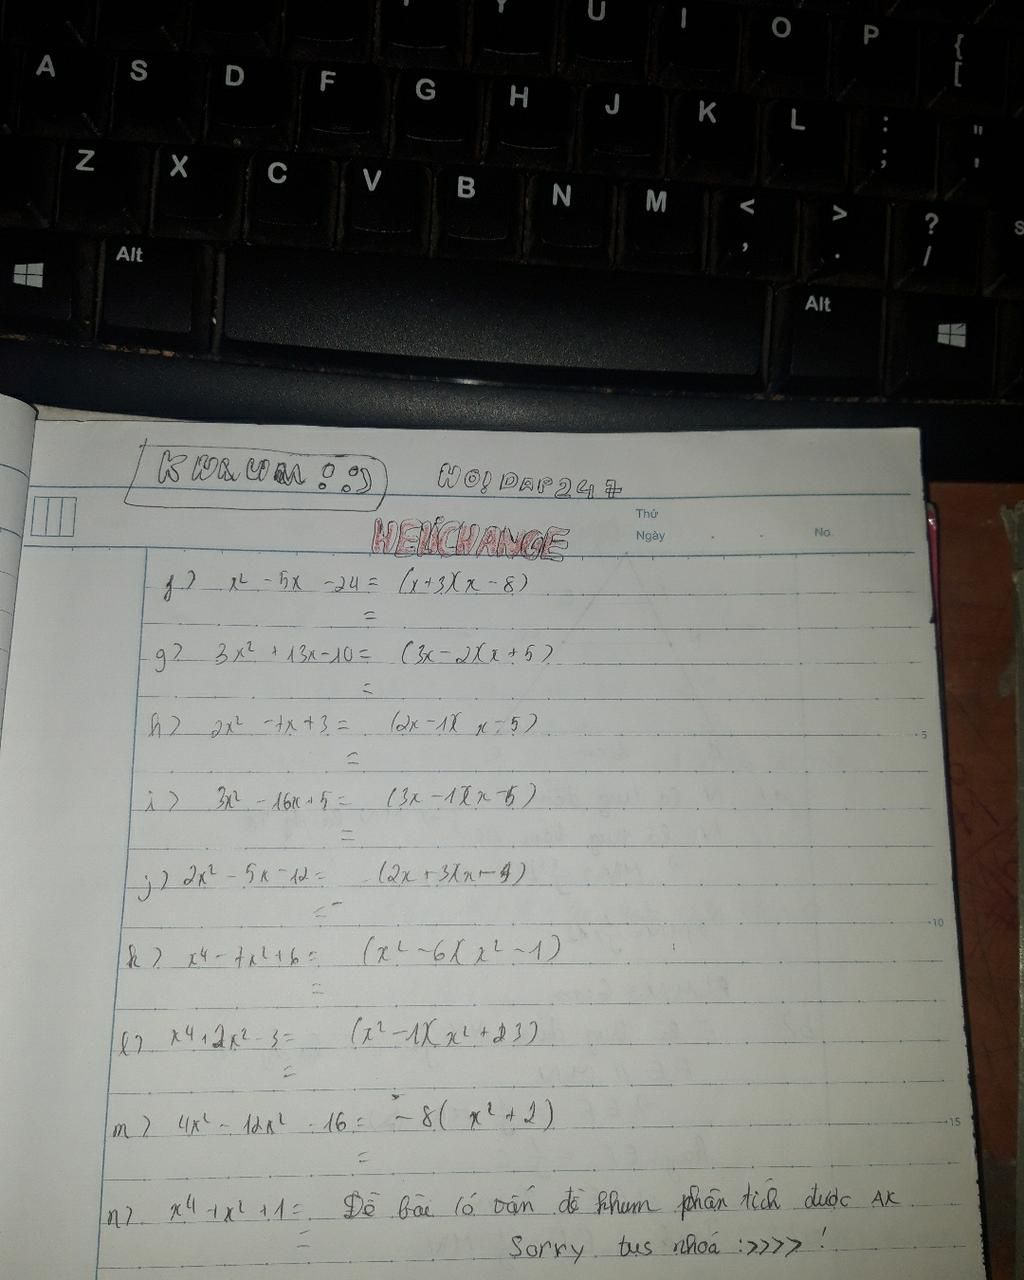 T Y U I O P { [
A S D F G H J K L : ; " '
Z X C V B N M < , > . ? / S
Alt Alt
KHUM ::)
HOIDAP247
Thứ
HELICHANGE
Ngày . . No.
f) x² - 5x - 24 = (x+3)(x - 8)
=
g) 3x² + 13x - 10 = (3x - 2)(x + 5)
=
h) 2x² - 7x + 3 = (2x - 1)( x - 5)
5
=
i) 3x² - 16x + 5 = (3x - 1)(x - 5)
=
j) 2x² - 5x - 12 = (2x + 3)(x - 4)
=
10
k) x⁴ - 7x² + 6 = (x² - 6)(x² - 1)
=
l) x⁴ + 2x² - 3 = (x² - 1)(x² + 3)
=
m) 4x² - 12x² - 16 = - 8( x² + 2)
15
=
n) x⁴ + x² + 1 = Đề bài có vấn đề khum phân tích được Ak
=
Sorry tus nhoá :>>>> !